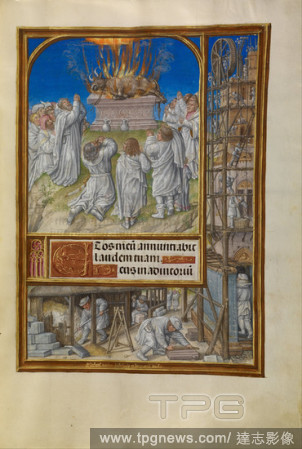 Et os meū annuntiabit
laudem tuam
eus in adiutoriū
TPG
www.tpgnews.com / 達志影像